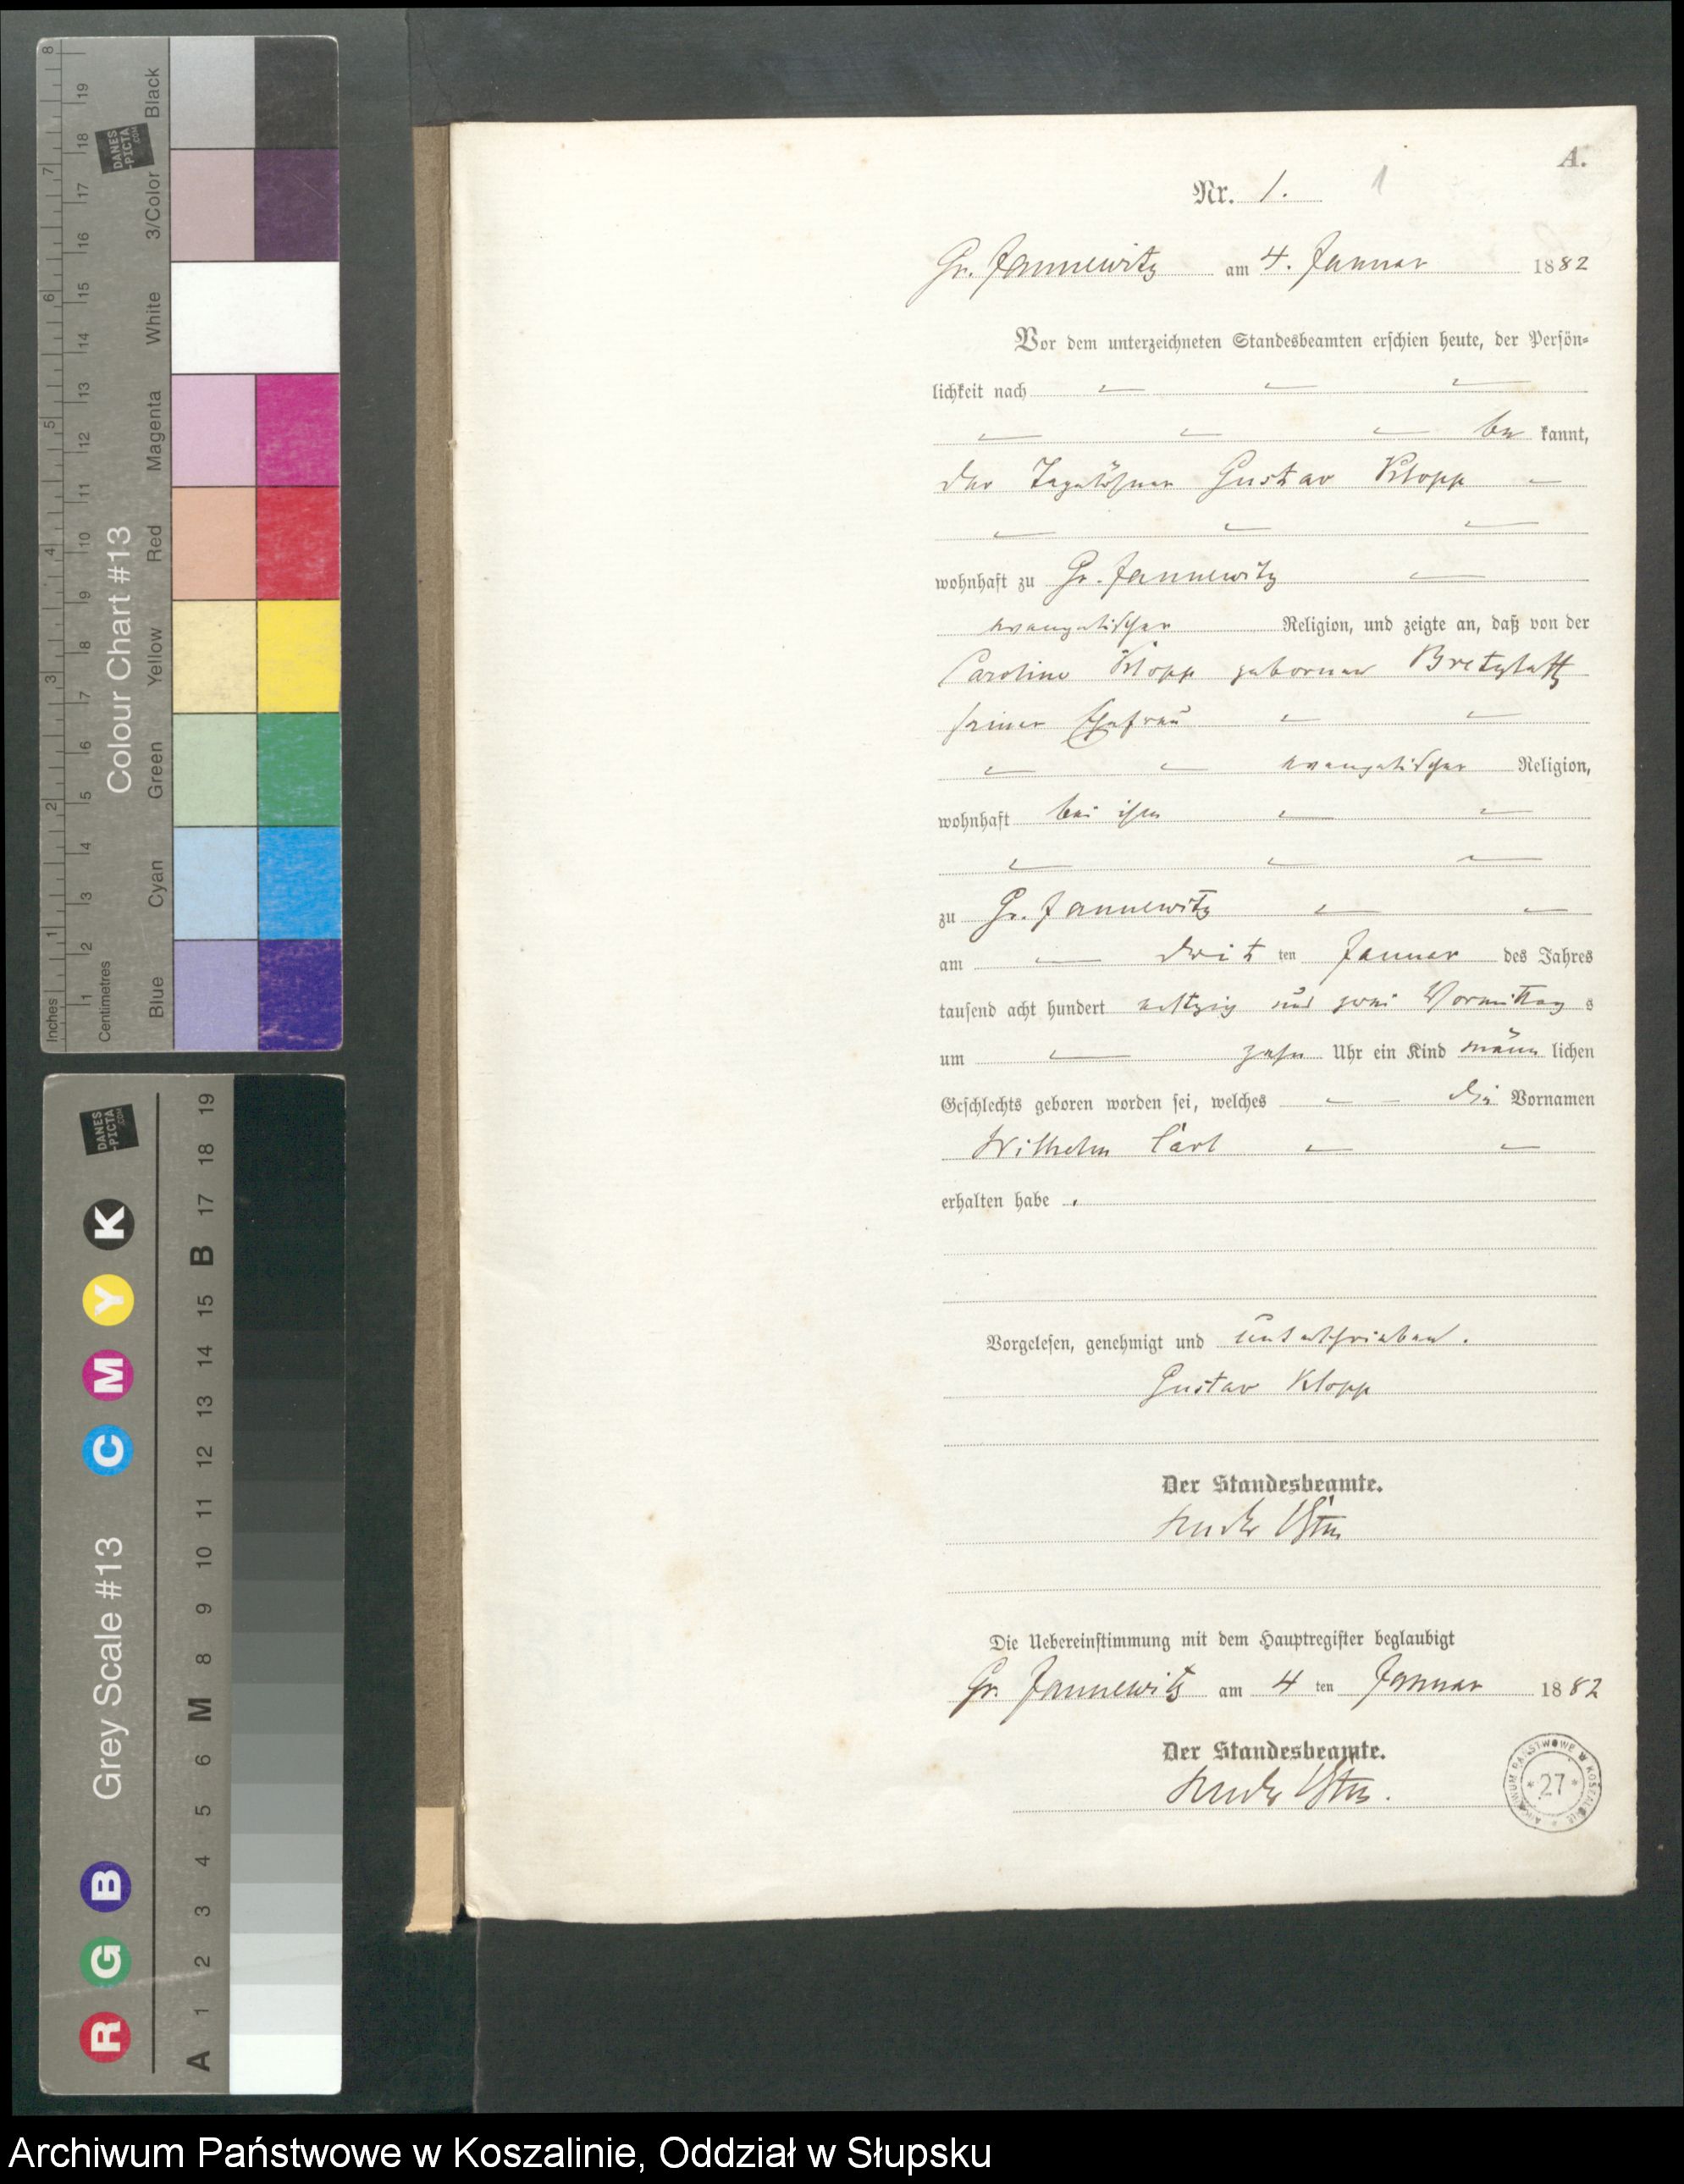 A.
Nr. 1.
1
Gr. Jannewitz am 4. Januar 1882
Vor dem unterzeichneten Standesbeamten erschien heute, der Persön-
lichkeit nach
be kannt,
der Tagelöhner Gustav Klopp
wohnhaft zu Gr. Jannewitz
evangelischer Religion, und zeigte an, daß von der
Caroline Klopp geborenen Bretzlaff
seiner Ehefrau
evangelischer Religion,
wohnhaft bei ihm
zu Gr. Jannewitz
am drit ten Januar des Jahres
tausend acht hundert achtzig und zwei Vormittag s
um zehn Uhr ein Kind männ lichen
Geschlechts geboren worden sei, welches die Vornamen
Wilhelm Carl
erhalten habe.
Vorgelesen, genehmigt und unterschrieben.
Gustav Klopp
Der Standesbeamte.
Die Uebereinstimmung mit dem Hauptregister beglaubigt
Gr. Jannewitz am 4 ten Januar 1882
Der Standesbeamte.
ARCHIWUM PAŃSTWOWE W KOSZALINIE
* 27 *
8 7 6 5 4 3 2 1 Inches
19 18 17 16 15 14 13 12 11 10 9 8 7 6 5 4 3 2 1 Centimetres
DANES
-PICTA
.COM
Colour Chart #13
Blue Cyan Green Yellow Red Magenta White 3/Color Black
DANES
-PICTA
.COM
Grey Scale #13
R G B C M Y K
A 1 2 3 4 5 6 M 8 9 10 11 12 13 14 15 B 17 18 19
Archiwum Państwowe w Koszalinie, Oddział w Słupsku